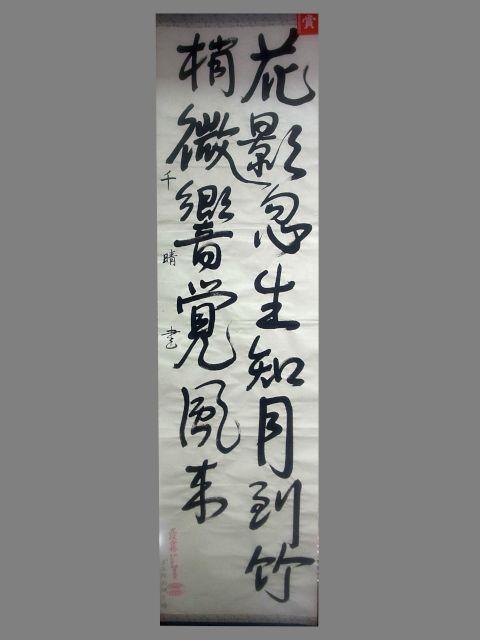 賞
花影忽生知月到竹
梢微響覚風来
千晴書